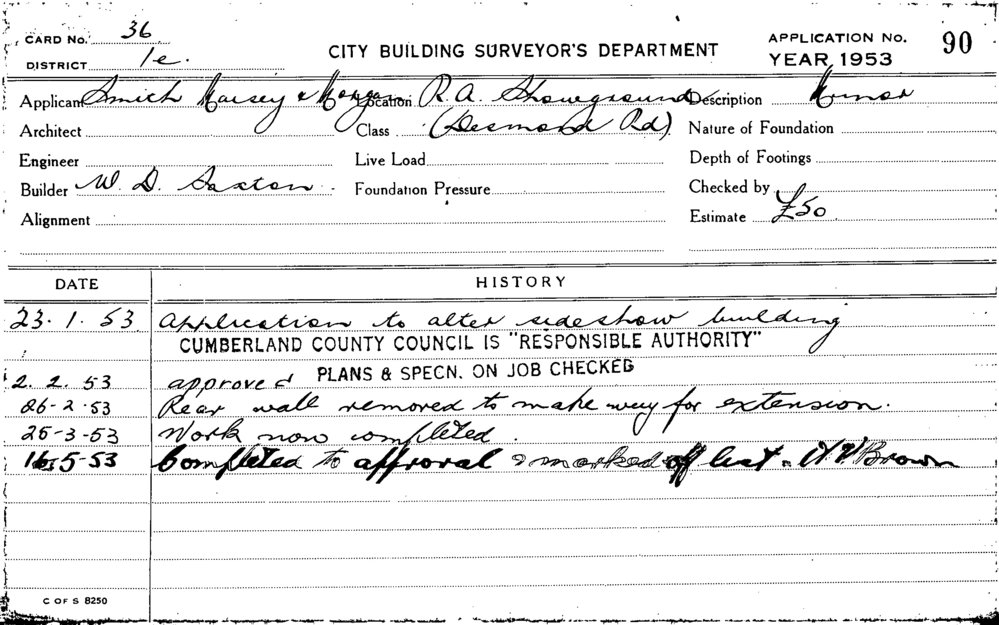 CARD No. 36
DISTRICT 1e.
CITY BUILDING SURVEYOR'S DEPARTMENT
APPLICATION No. 90
YEAR 1953
Applicant Smith Maisey & Morgan Location R. A. Showground Description Minor
Architect Class (Desmond Rd) Nature of Foundation
Engineer Live Load Depth of Footings
Builder W. D. Saxton Foundation Pressure Checked by
Alignment Estimate £50
DATE HISTORY
23.1.53 Application to alter sideshow building
CUMBERLAND COUNTY COUNCIL IS "RESPONSIBLE AUTHORITY"
2.2.53 approved PLANS & SPECN. ON JOB CHECKED
26-2-53 Rear wall removed to make way for extension.
25-3-53 Work now completed.
5-53 Completed to approval & marked off list. Brown
C OF S 8250